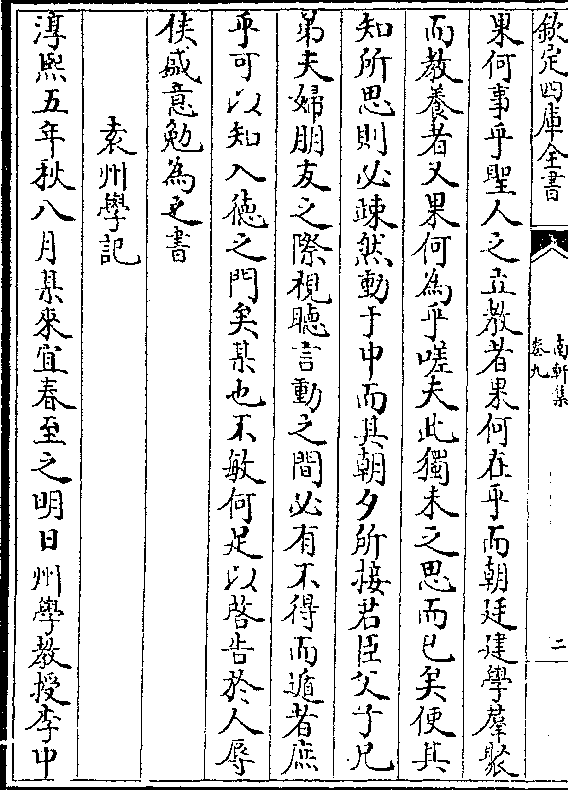 欽定四庫全書
南軒集
卷九
二
果何事乎聖人之立教者果何在乎而朝廷建學羣聚
而教養者又果何為乎嗟夫此獨未之思而已矣使其
知所思則必竦然動于中而其朝夕所接君臣父子兄
弟夫婦朋友之際視聽言動之間必有不得而遁者庶
乎可以知入徳之門矣某也不敏何足以啓告於人辱
侯盛意勉為之書
袁州學記
淳熙五年秋八月某來宜春至之明日州學教授李中